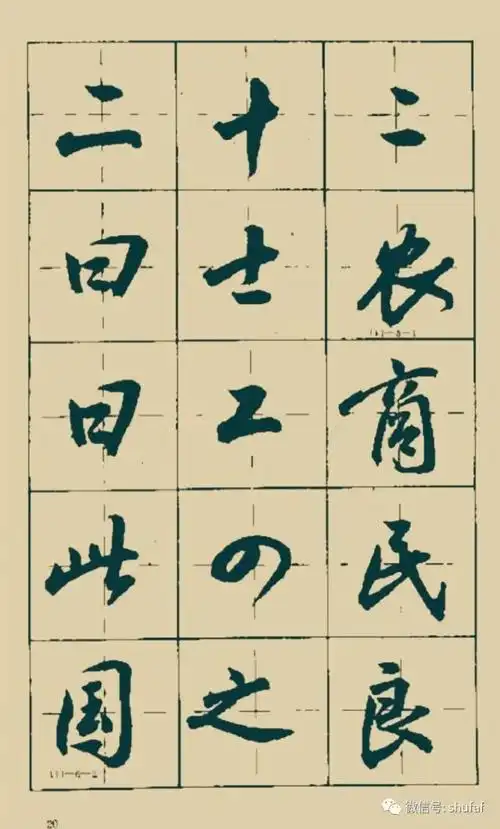 二十二
曰士农
曰工商
此四民
国之良
20
微信号: shufaf